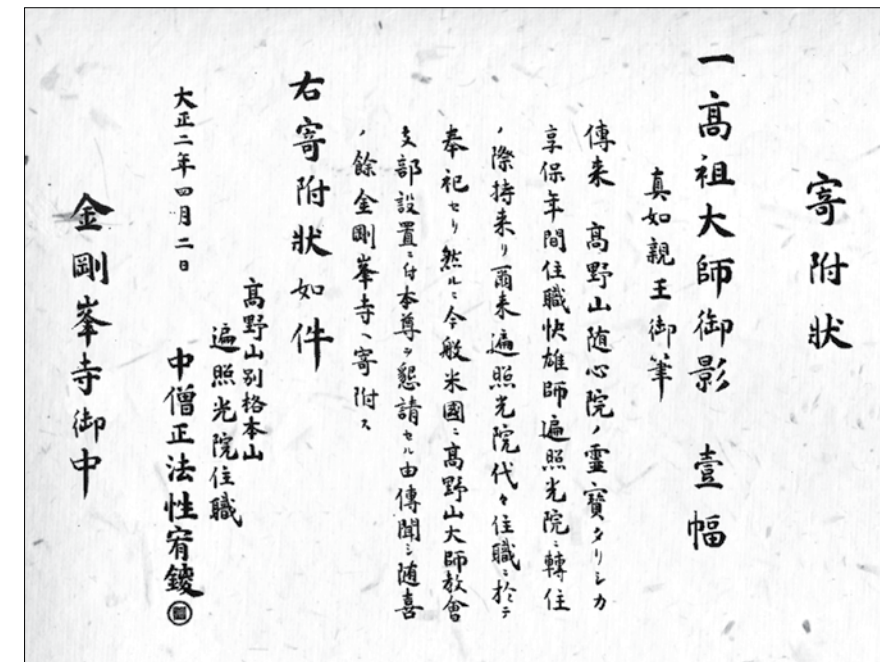 寄附狀
一高祖大師御影　壹幅
真如親王御筆
傳来　高野山随心院ノ霊寳タリシカ
享保年間住職快雄師遍照光院ニ轉住
ノ際持来リ爾来遍照光院代々住職ニ於テ
奉祀セリ然ルニ今般米國ニ高野山大師教會
支部設置ニ付本尊ヲ懇請セル由傳聞シ随喜
ノ餘金剛峯寺ヘ寄附ス
右寄附狀如件
高野山別格本山
遍照光院住職
大正二年四月二日
中僧正法性宥鑁
金剛峯寺御中